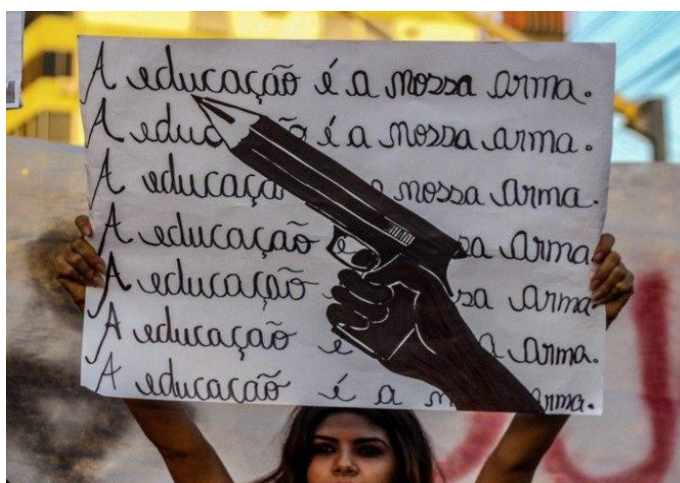 A educação é a nossa arma.
A educação é a nossa arma.
A educação a nossa arma.
A educação é sa arma
A educação sa arma.
A educação é a arma.
A educação é a arma.